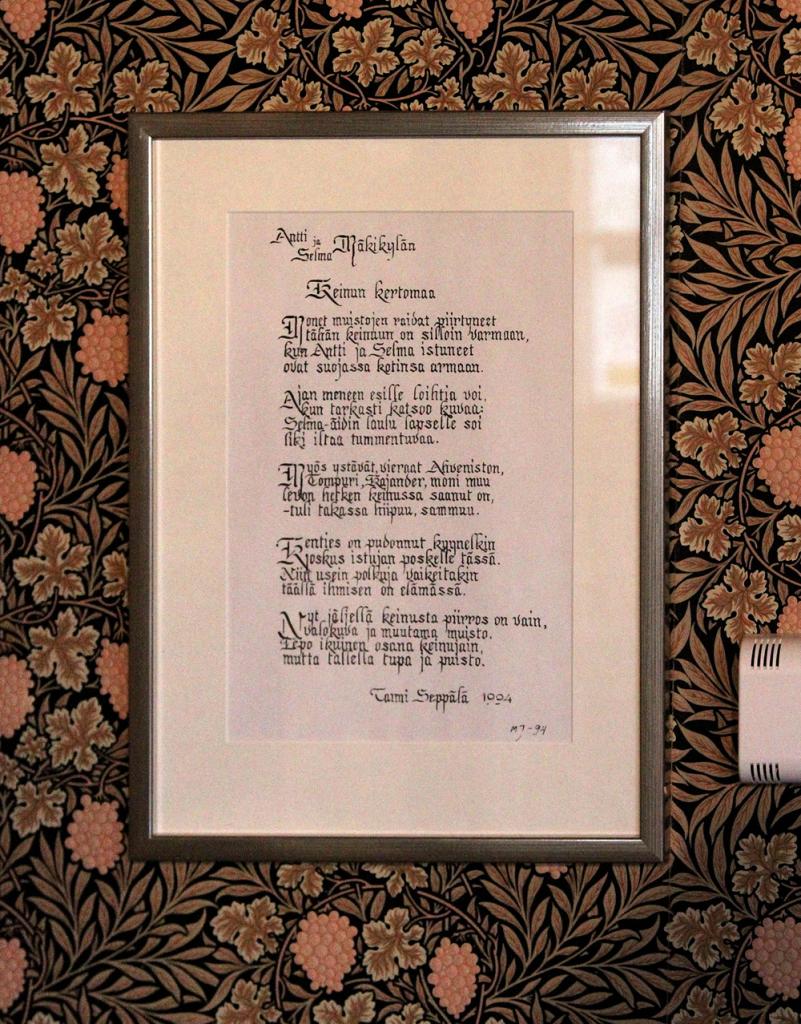 Antti ja Selma Mäkikylän
Keinun kertomaa
Monet muistojen raidat piirtyneet
tähän keinuun on silloin varmaan,
kun Antti ja Selma istuneet
ovat suojassa kotinsa armaan.
Ajan menneen esille loihtia voi,
kun tarkasti katsoo kuvaa:
Selma-äidin laulu lapselle soi
liki iltaa tummentuvaa.
Myös ystävät, vieraat Ahveniston,
Tompuri, Kajander, moni muu
levon hetken keinussa saanut on,
-tuli takassa hiipuu, sammuu.
Kenties on pudonnut kyynelkin
joskus istujan poskelle tässä.
Niin usein polkuja vaikeitakin
täällä ihmisen on elämässä.
Nyt jäljellä keinusta piirros on vain,
valokuva ja muutama muisto.
Lepo ikuinen osana keinujain,
mutta tallella tupa ja puisto.
Taimi Seppälä 1994
MJ-94